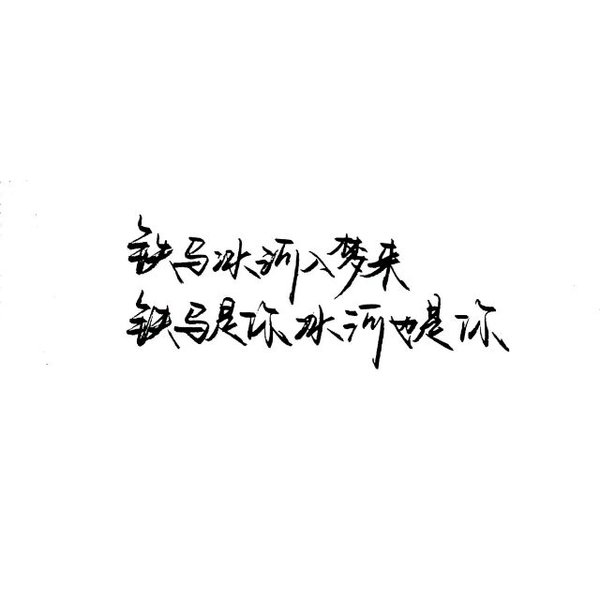 铁马冰河入梦来
铁马是你冰河也是你